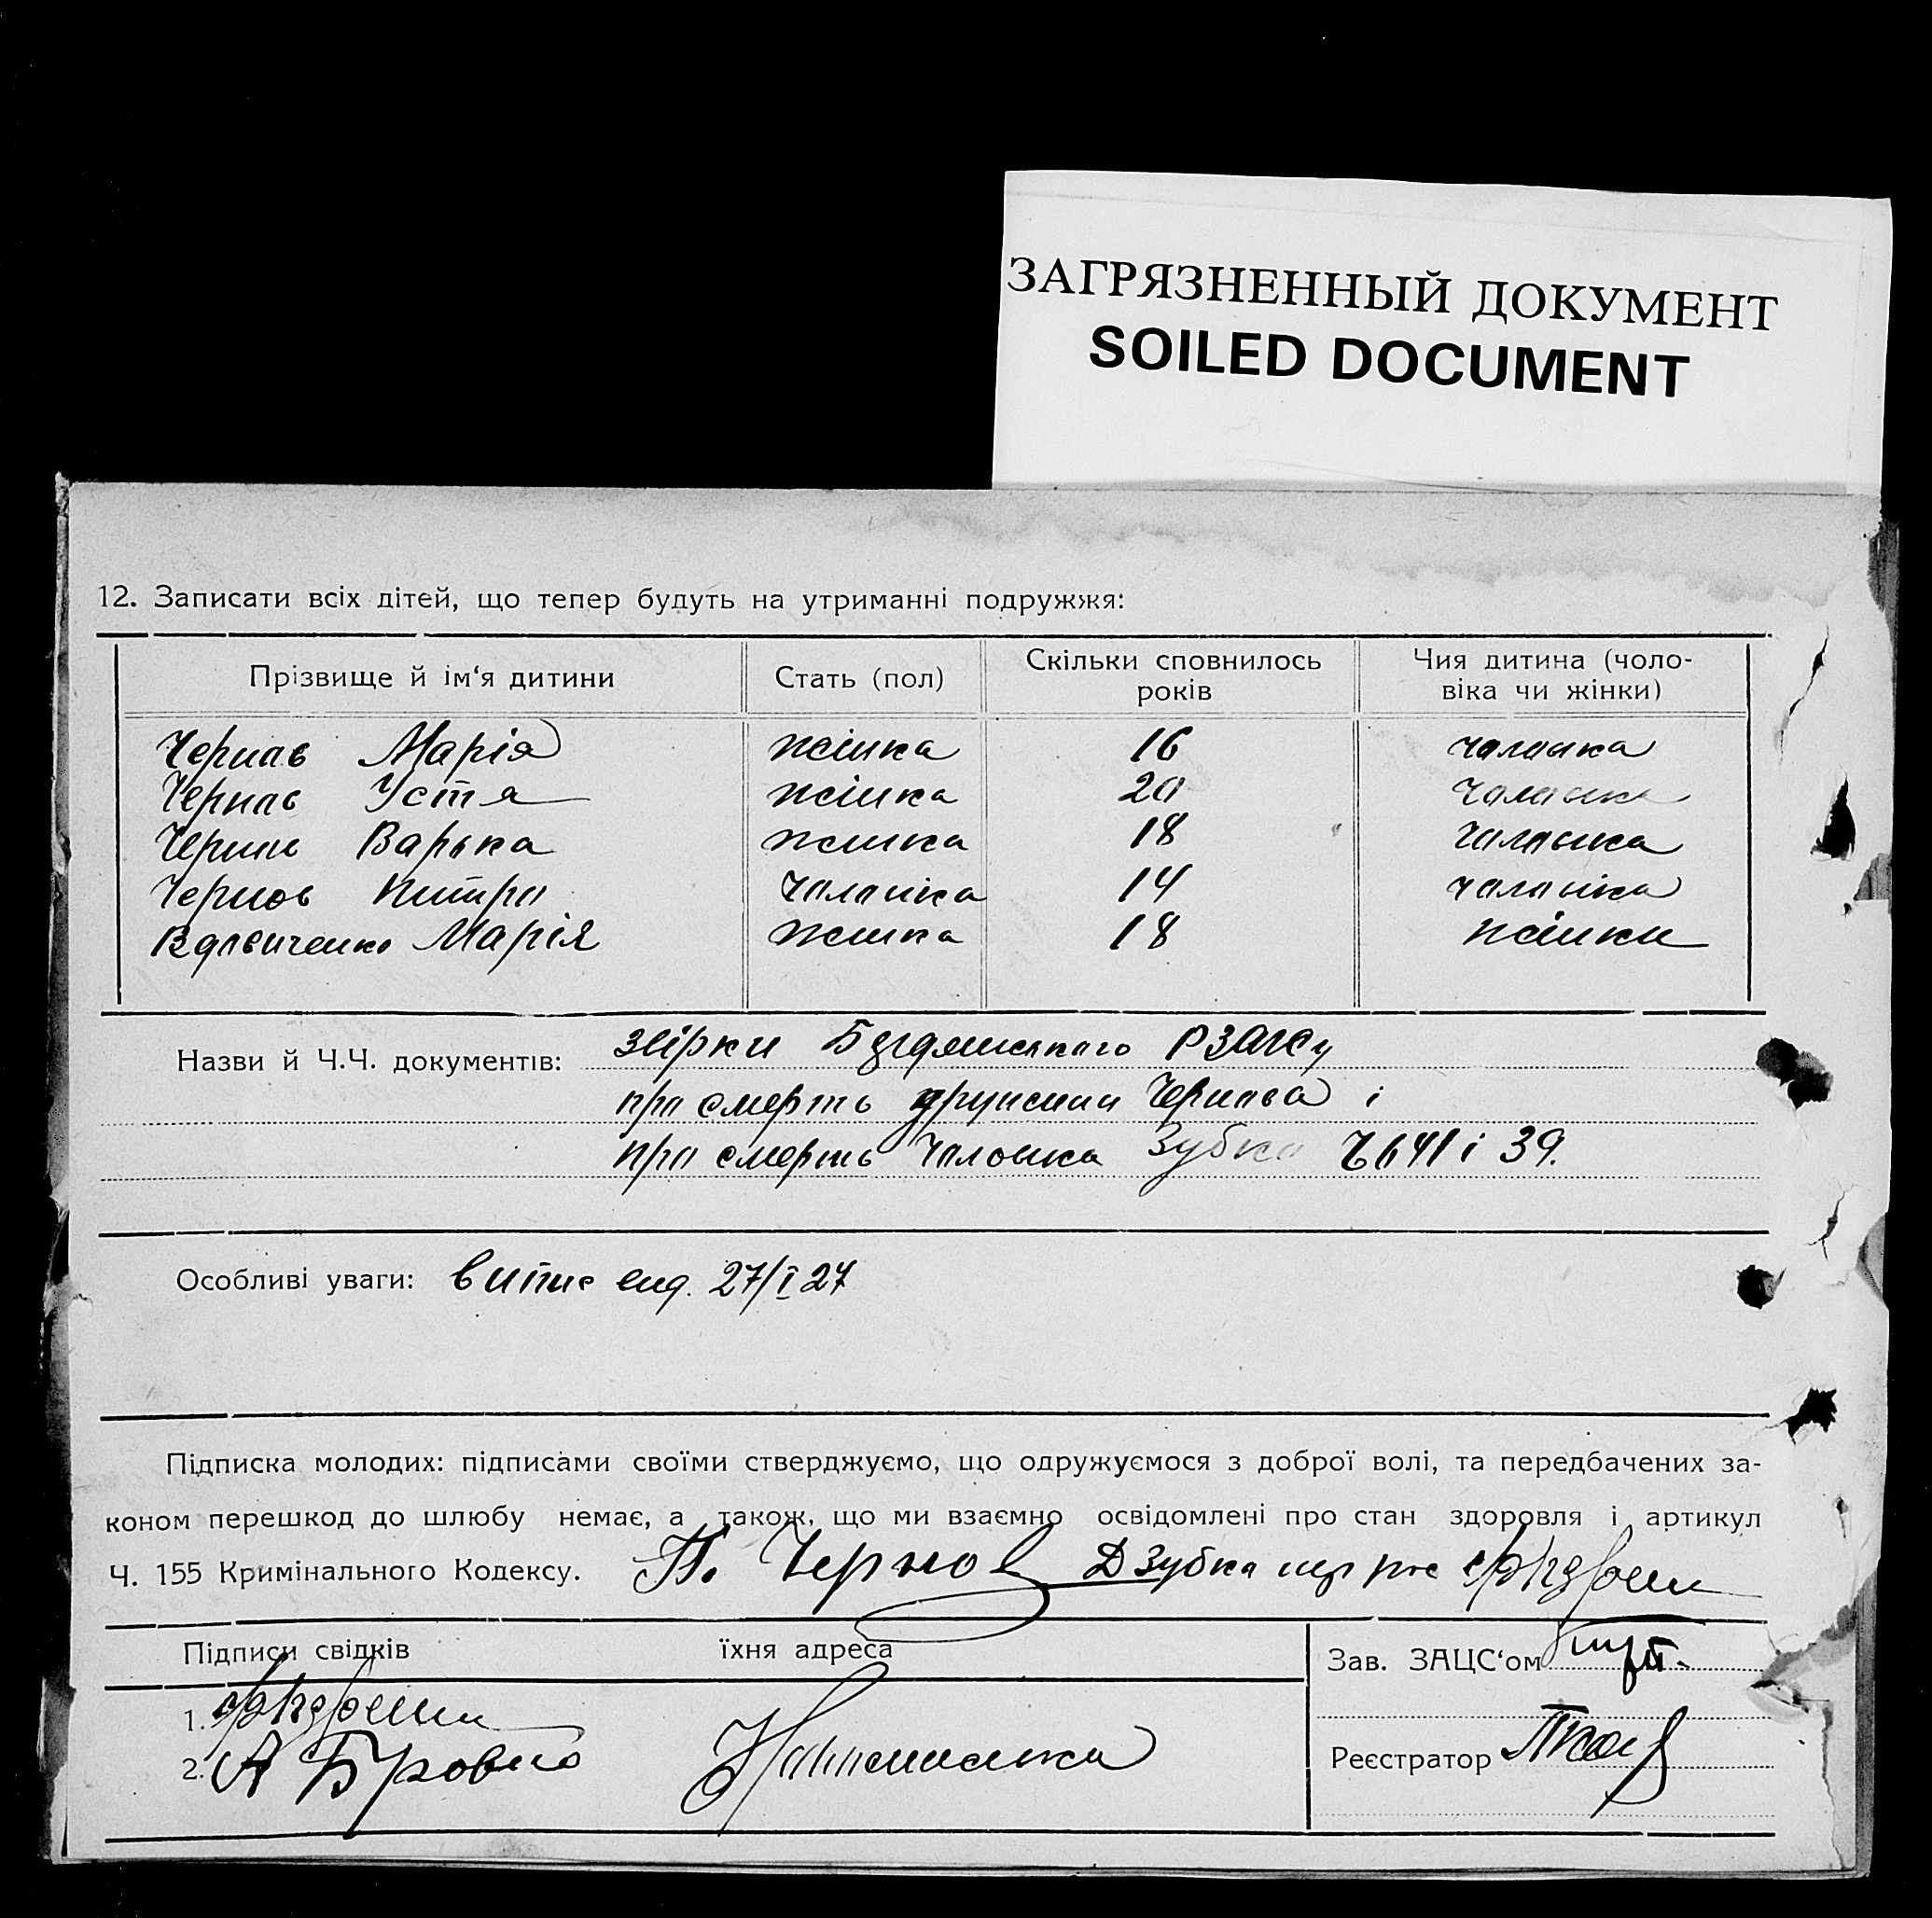 ЗАГРЯЗНЕННЫЙ ДОКУМЕНТ
SOILED DOCUMENT
12. Записати всіх дітей, що тепер будуть на утриманні подружжя:
Прізвище й ім'я дитини Стать (пол) Скільки сповнилось років Чия дитина (чоловіка чи жінки)
Чернов Марія жінка 16 чоловіка
Чернов Устя жінка 20 чоловіка
Чернов Варька жінка 18 чоловіка
Чернов Питро чоловіка 14 чоловіка
Марія жінка 18 жінки
Назви й Ч.Ч. документів:
про смерть дружини Чернова і
про смерть чоловіка Зубка і 39.
Особливі уваги: випис 27/I 27
Підписка молодих: підписами своїми стверджуємо, що одружуємося з доброї волі, та передбачених за-
коном перешкод до шлюбу немає, а також, що ми взаємно освідомлені про стан здоровля і артикул
Ч. 155 Кримінального Кодексу. П. Чернов Д Зубка
Підписи свідків їхня адреса Зав. ЗАЦС'ом
1.
2. А Бровко Реєстратор